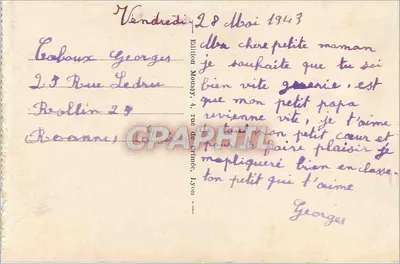 Vendredi 28 Mai 1943
Caboux Georges
25 Rue Ledru
Rollin 25
(Roanne)
Edition Moussy, 4, rue de Crimée, Lyon
Ma chere petite maman
je souhaite que tu soi
bien vite guerie, est
que mon petit papa
revienne vite, je t'aime
mon petit cœur et
faire plaisir je
mapliqueré bien en classe
ton petit qui t'aime
Georges
CPARAMA